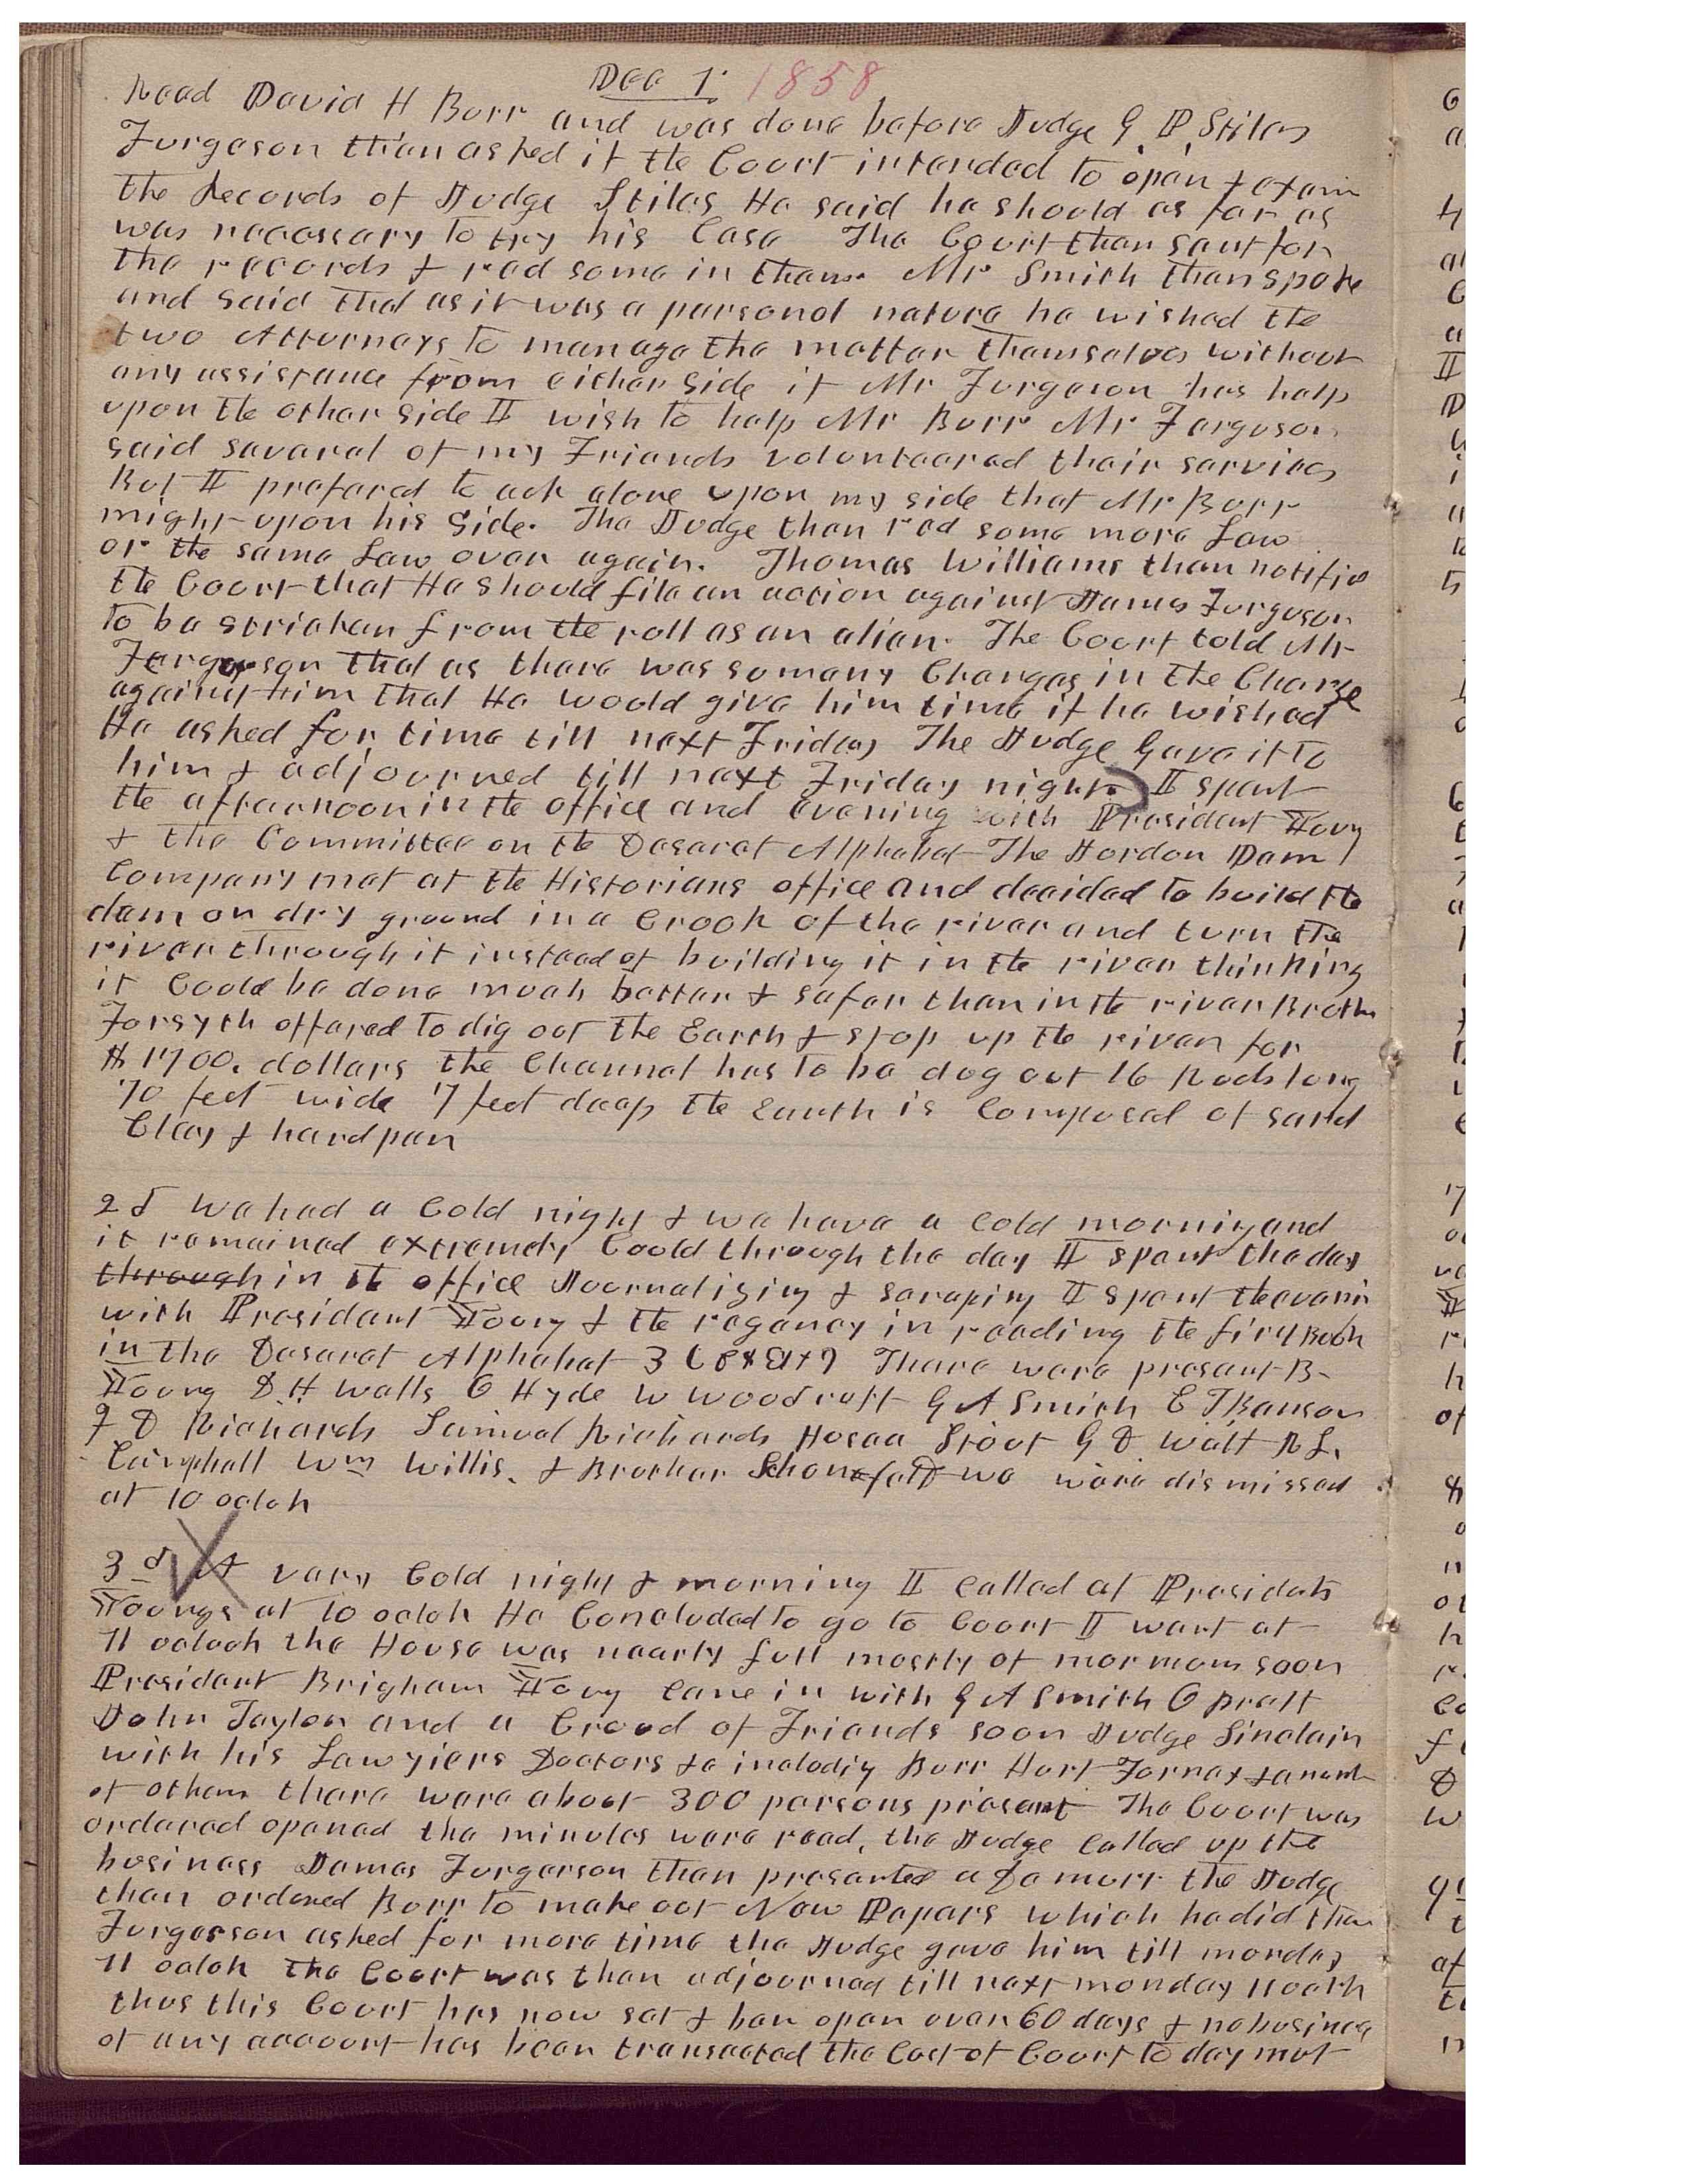 Dec 1. 1858
Read David H Burr and was done before Judge G. P. Stiles
Furgeson then asked if the Court intended to open & exam
the Records of Judge Stiles He said he should as far as
was necessary to try his Case The Court then sent for
the records & read some in them. Mr Smith then spoke
and said that as it was a personal nature he wished the
two Atturneys to manage the matter themselves without
any assistance from either side if Mr Furgeson has help
upon the other side I wish to help Mr Burr Mr Ferguson
said several of my Friends volunteered their services
But I prefered to act alone upon my side that Mr Burr
might upon his side. The Judge then red some more Law
or the same Law over again. Thomas Williams then notifie
the Court that He should file an action against James Furguson
to be stricken from the roll as an alien. The Court told Mr
Ferguson that as there was so many Charges in the Charge
against him that He would give him time if he wished
He asked for time till next Friday The Judge Gave it to
him & adjourned till next Friday night. I spent
the afternoon in the office and evening with President Young
& the Committee on the Deseret Alphabet The Jordon Dam
Company met at the Historians office and decided to build the
dam on dry ground in a Crook of the river and turn the
river through it instead of building it in the river thinking
it Could be done much better & safer than in the river Brother
Forsyth offered to dig out the Earth & stop up the river for
$1700. dollars the Channel has to be dug out 16 Rods long
70 feet wide 7 feet deep the Earth is Composed of sand
Clay & hardpan
2d We had a Cold night & we have a Cold morning and
it remained extremely Coold through the day I spent the day
through in the office Journalizing & scraping I spent the evenin
with President Young & the regency in reading the first Book
in the Deseret Alphabet There were present B-
Young D H Wells O Hyde W Woodruff G A Smith E T Benson
F D Richards Samuel Richards Hosea Stout G D Watt R L.
Campbell Wm Willis. & Brother we were dismissed
at 10 oclok
3d A very Cold night & morning I called at Presidets
Youngs at 10 oclok He Concluded to go to Court I went at
11 oclock the House was nearly full mostly of mormons soon
President Brigham Young came in with G A Smith O pratt
John Taylor and a Croud of Friends soon Judge Sinclair
with his Lawyiers Doctors &c includig Burr Hart & a
of others there were about 300 persons present The Court was
ordered opened the minutes were read, the Judge Called up the
business James Furgerson then presented a Demurr the Judge
then ordered Burr to make out New Papers which he did then
Furgerson asked for more time the Judge gave him till monday
11 oclok The Court was then adjourned till next monday 11 oclk
thus this Court has now sat & ben open over 60 days & no busines
of any account has been transacted the Cost of Court to day must